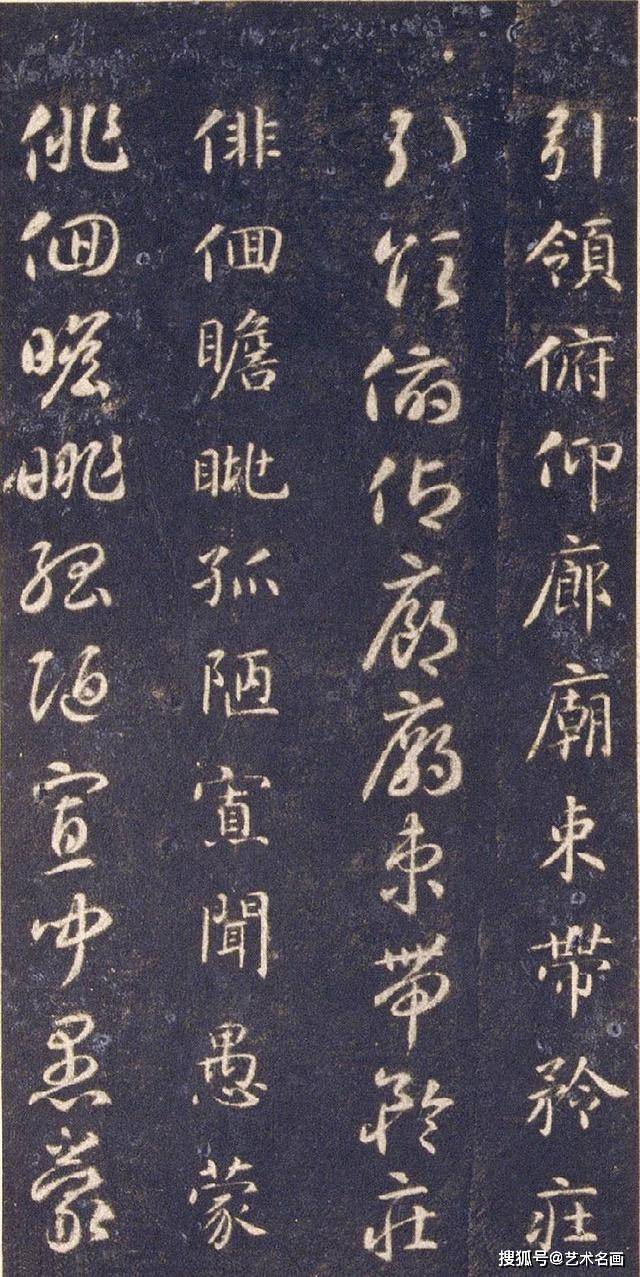 引領俯仰廊廟束帶矜莊
引領俯仰廊廟束帶矜莊
俳佪瞻眺孤陋寡聞愚蒙
俳佪瞻眺孤陋寡聞愚蒙
搜狐号@艺术名画